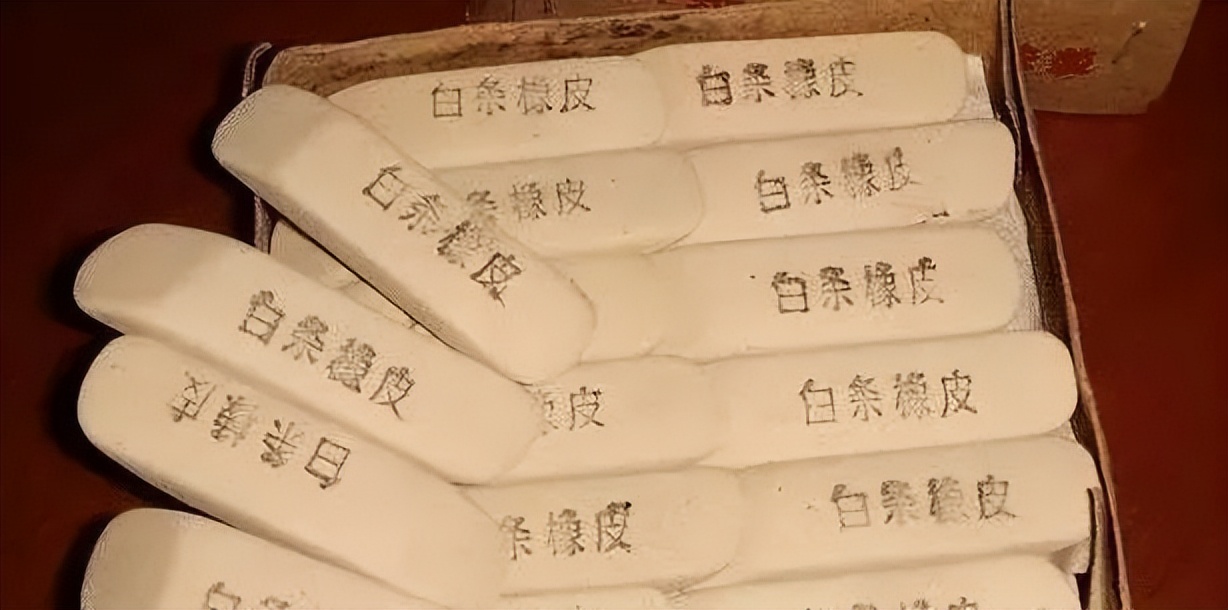 白条橡皮
白条橡皮
白条橡皮
条橡皮
白条橡皮
白条橡皮
白条橡皮
皮
白条橡皮
白条橡皮
条橡皮
白条橡皮
白条